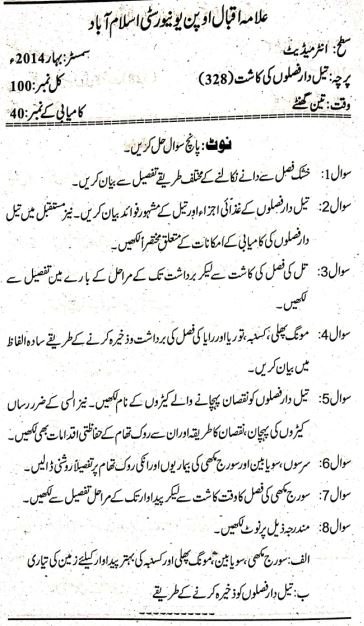 علامہ اقبال اوپن یونیورسٹی اسلام آباد
سطح: انٹرمیڈیٹ سمسٹر: بہار 2014ء
پرچہ: تیل دار فصلوں کی کاشت (328) کل نمبر: 100
وقت: تین گھنٹے کامیابی کے نمبر: 40
نوٹ: پانچ سوال حل کریں۔
سوال 1: خشک فصل سے دانے نکالنے کے مختلف طریقے تفصیل سے بیان کریں۔
سوال 2: تیل دار فصلوں کے غذائی اجزاء اور تیل کے مشہور فوائد بیان کریں۔ نیز مستقبل میں تیل
دار فصلوں کی کامیابی کے امکانات کے متعلق مختصراً لکھیں۔
سوال 3: تل کی فصل کی کاشت سے لیکر برداشت تک کے مراحل کے بارے مین تفصیل سے
لکھیں۔
سوال 4: مونگ پھلی، کسنبہ، توریا اور رایا کی فصل کی برداشت و ذخیرہ کرنے کے طریقے سادہ الفاظ
میں بیان کریں۔
سوال 5: تیل دار فصلوں کو نقصان پہچانے والے کیڑوں کے نام لکھیں۔ نیز السی کے ضرر رساں
کیڑوں کی پہچان، نقصان کا طریقہ اور ان سے روک تھام کے حفاظتی اقدامات بھی لکھیں۔
سوال 6: سرسوں، سویا بین اور سورج مکھی کی بیماریوں اور انکی روک تھام پر تفصیلاً روشنی ڈالیں۔
سوال 7: سورج مکھی کی فصل کا وقت کاشت سے لیکر پیداوار تک کے مراحل تفصیل سے لکھیں۔
سوال 8: مندرجہ ذیل پر نوٹ لکھیں۔
الف: سورج مکھی، سویا بین، مونگ پھلی اور کسنبہ کی بہتر پیداوار کیلئے زمین کی تیاری
ب: تیل دار فصلوں کو ذخیرہ کرنے کے طریقے